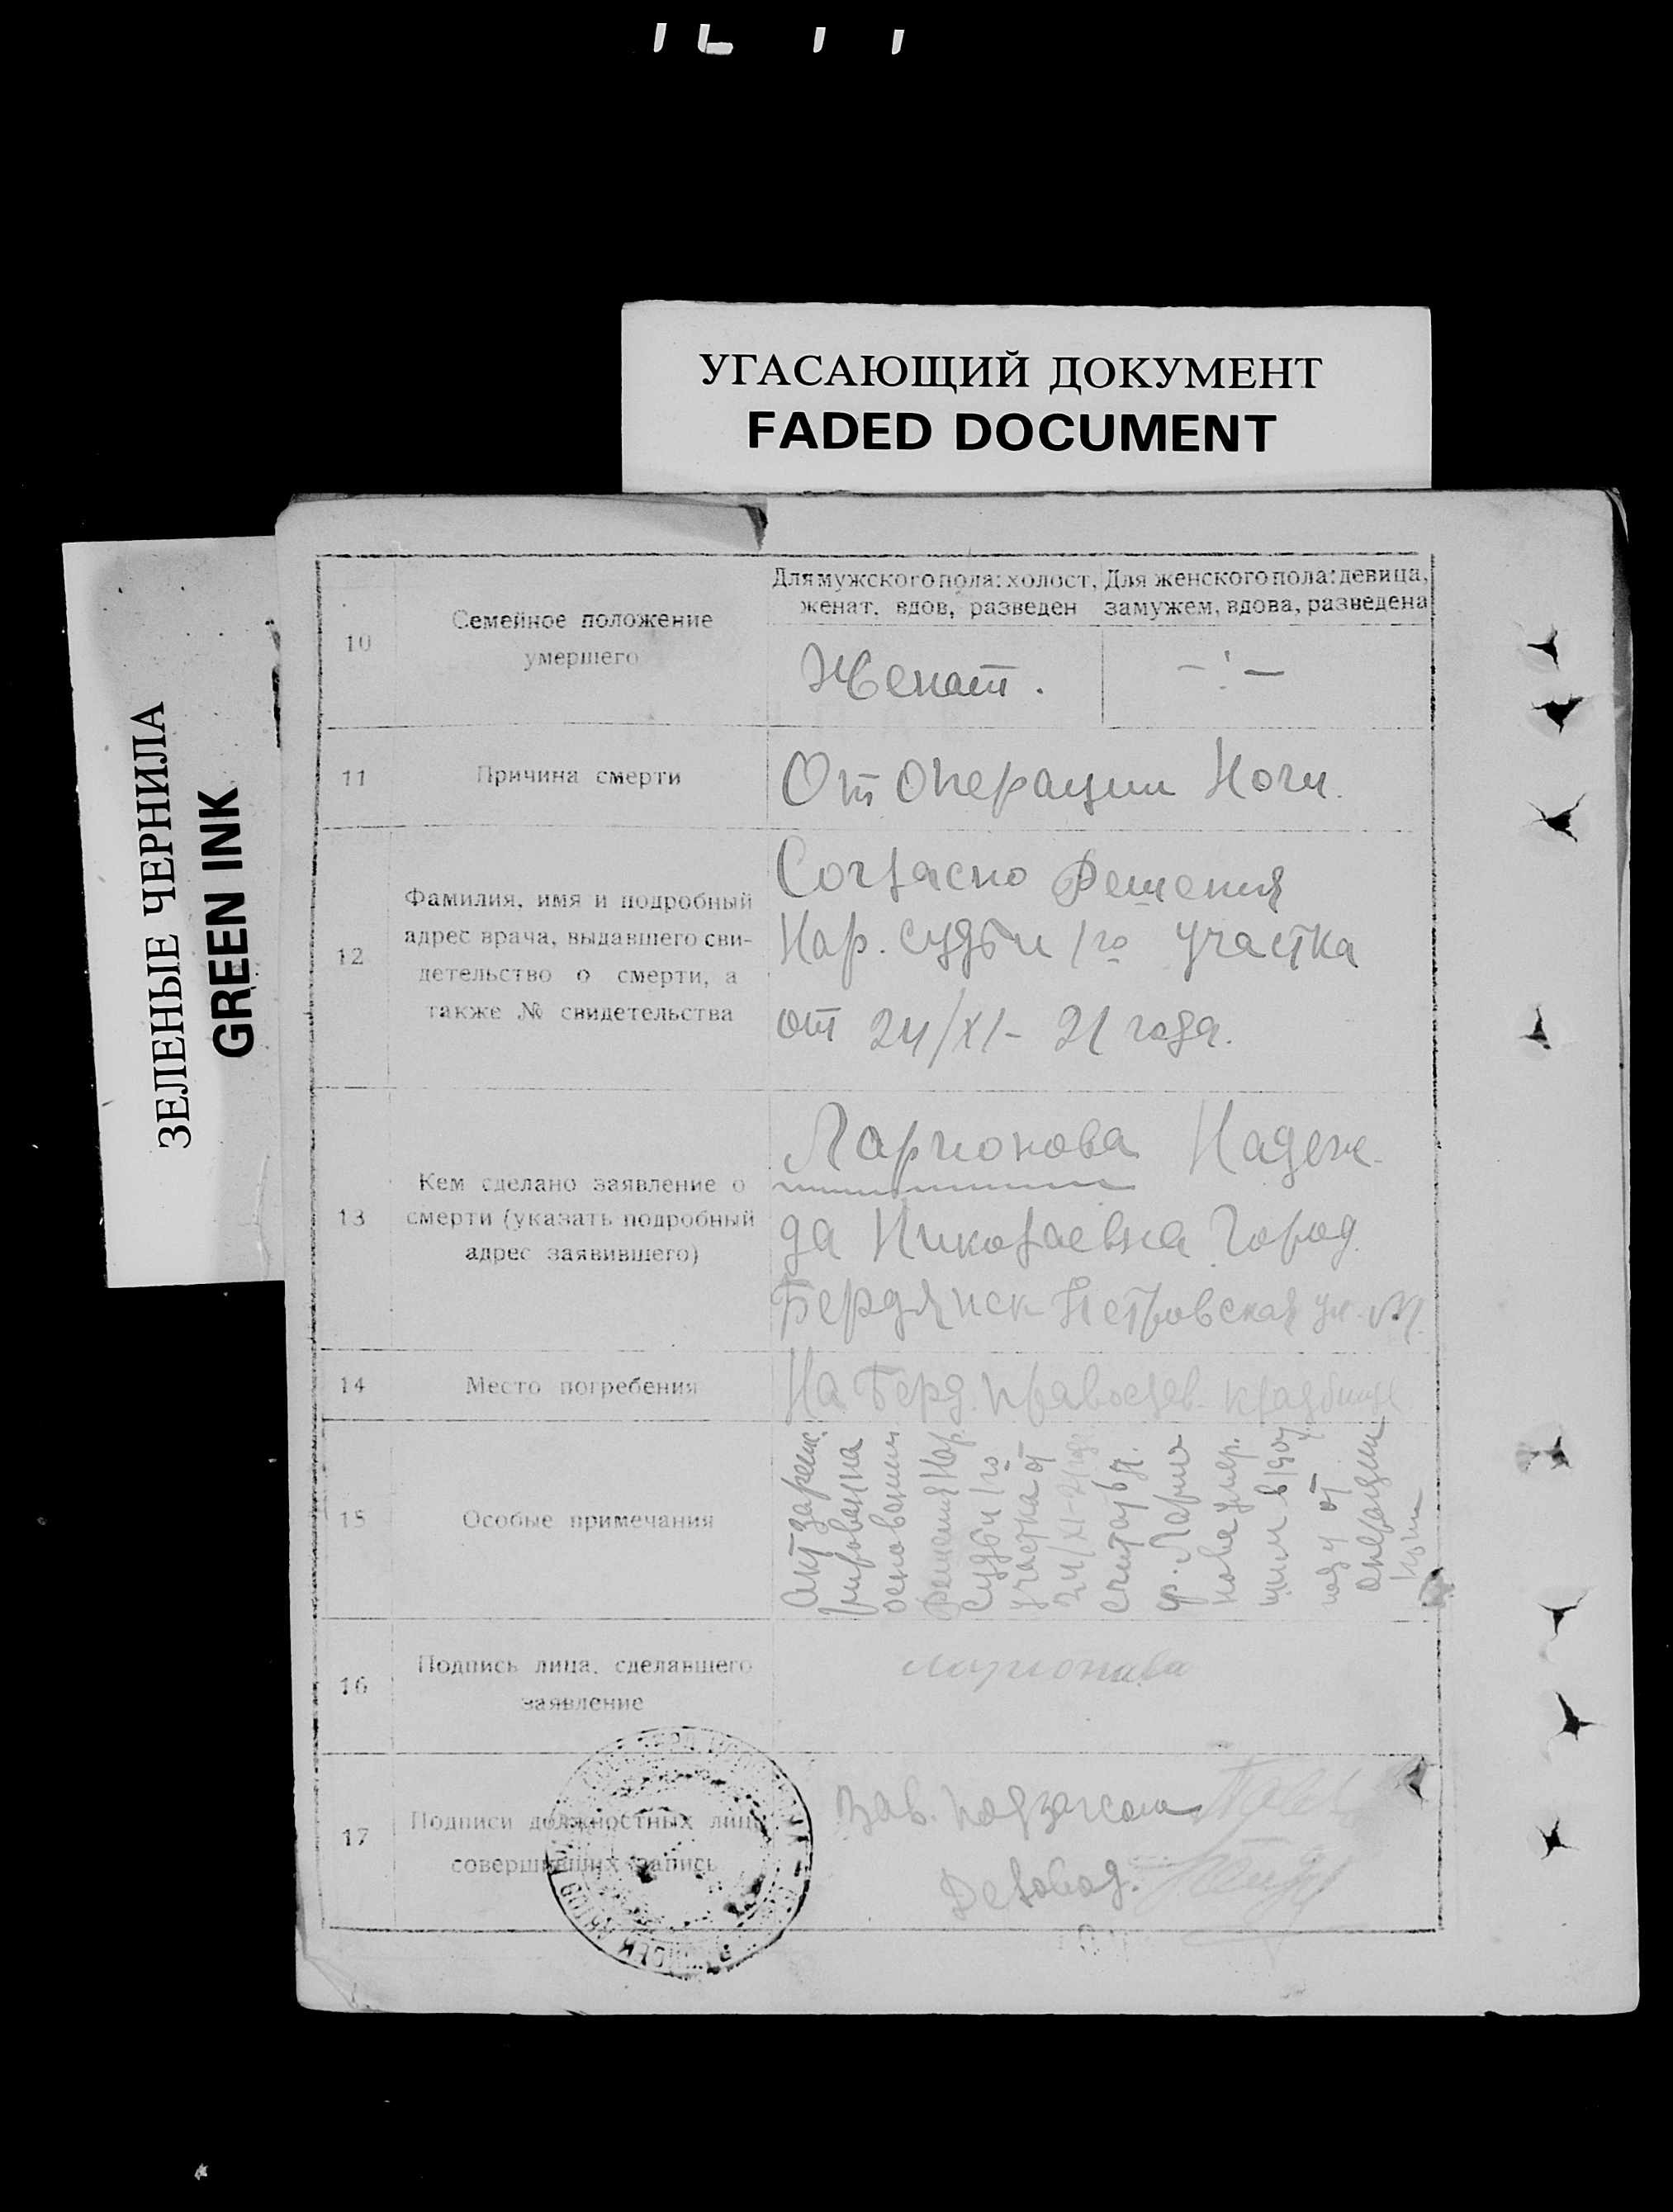 УГАСАЮЩИЙ ДОКУМЕНТ
FADED DOCUMENT
ЗЕЛЕНЫЕ ЧЕРНИЛА
GREEN INK
10
Семейное положение
умершего
Для мужского пола: холост,
женат, вдов, разведен
Для женского пола: девица,
замужем, вдова, разведена
Женат.
11
Причина смерти
От операции Ноги.
12
Фамилия, имя и подробный
адрес врача, выдавшего сви-
детельство о смерти, а
также № свидетельства
Согласно Решения
Нар. судьи 1го участка
от 24/XI- 21 года.
13
Кем сделано заявление о
смерти (указать подробный
адрес заявившего)
Ларионова Надеж-
да Николаевна Город
Бердянск Петровская ул.
14
Место погребения
На Берд. православ. кладбище
15
Особые примечания
Акт зарегис
на
основании
решения Нар.
Судьи 1го
участка от
24/XI-21
считать
гр. Ларио
нова умер
шим в 1904
году от
операции
16
Подпись лица, сделавшего
заявление
Ларионова
17
Подписи должностных лиц,
совершивших запись
Зав. подзагсом
Деловод.